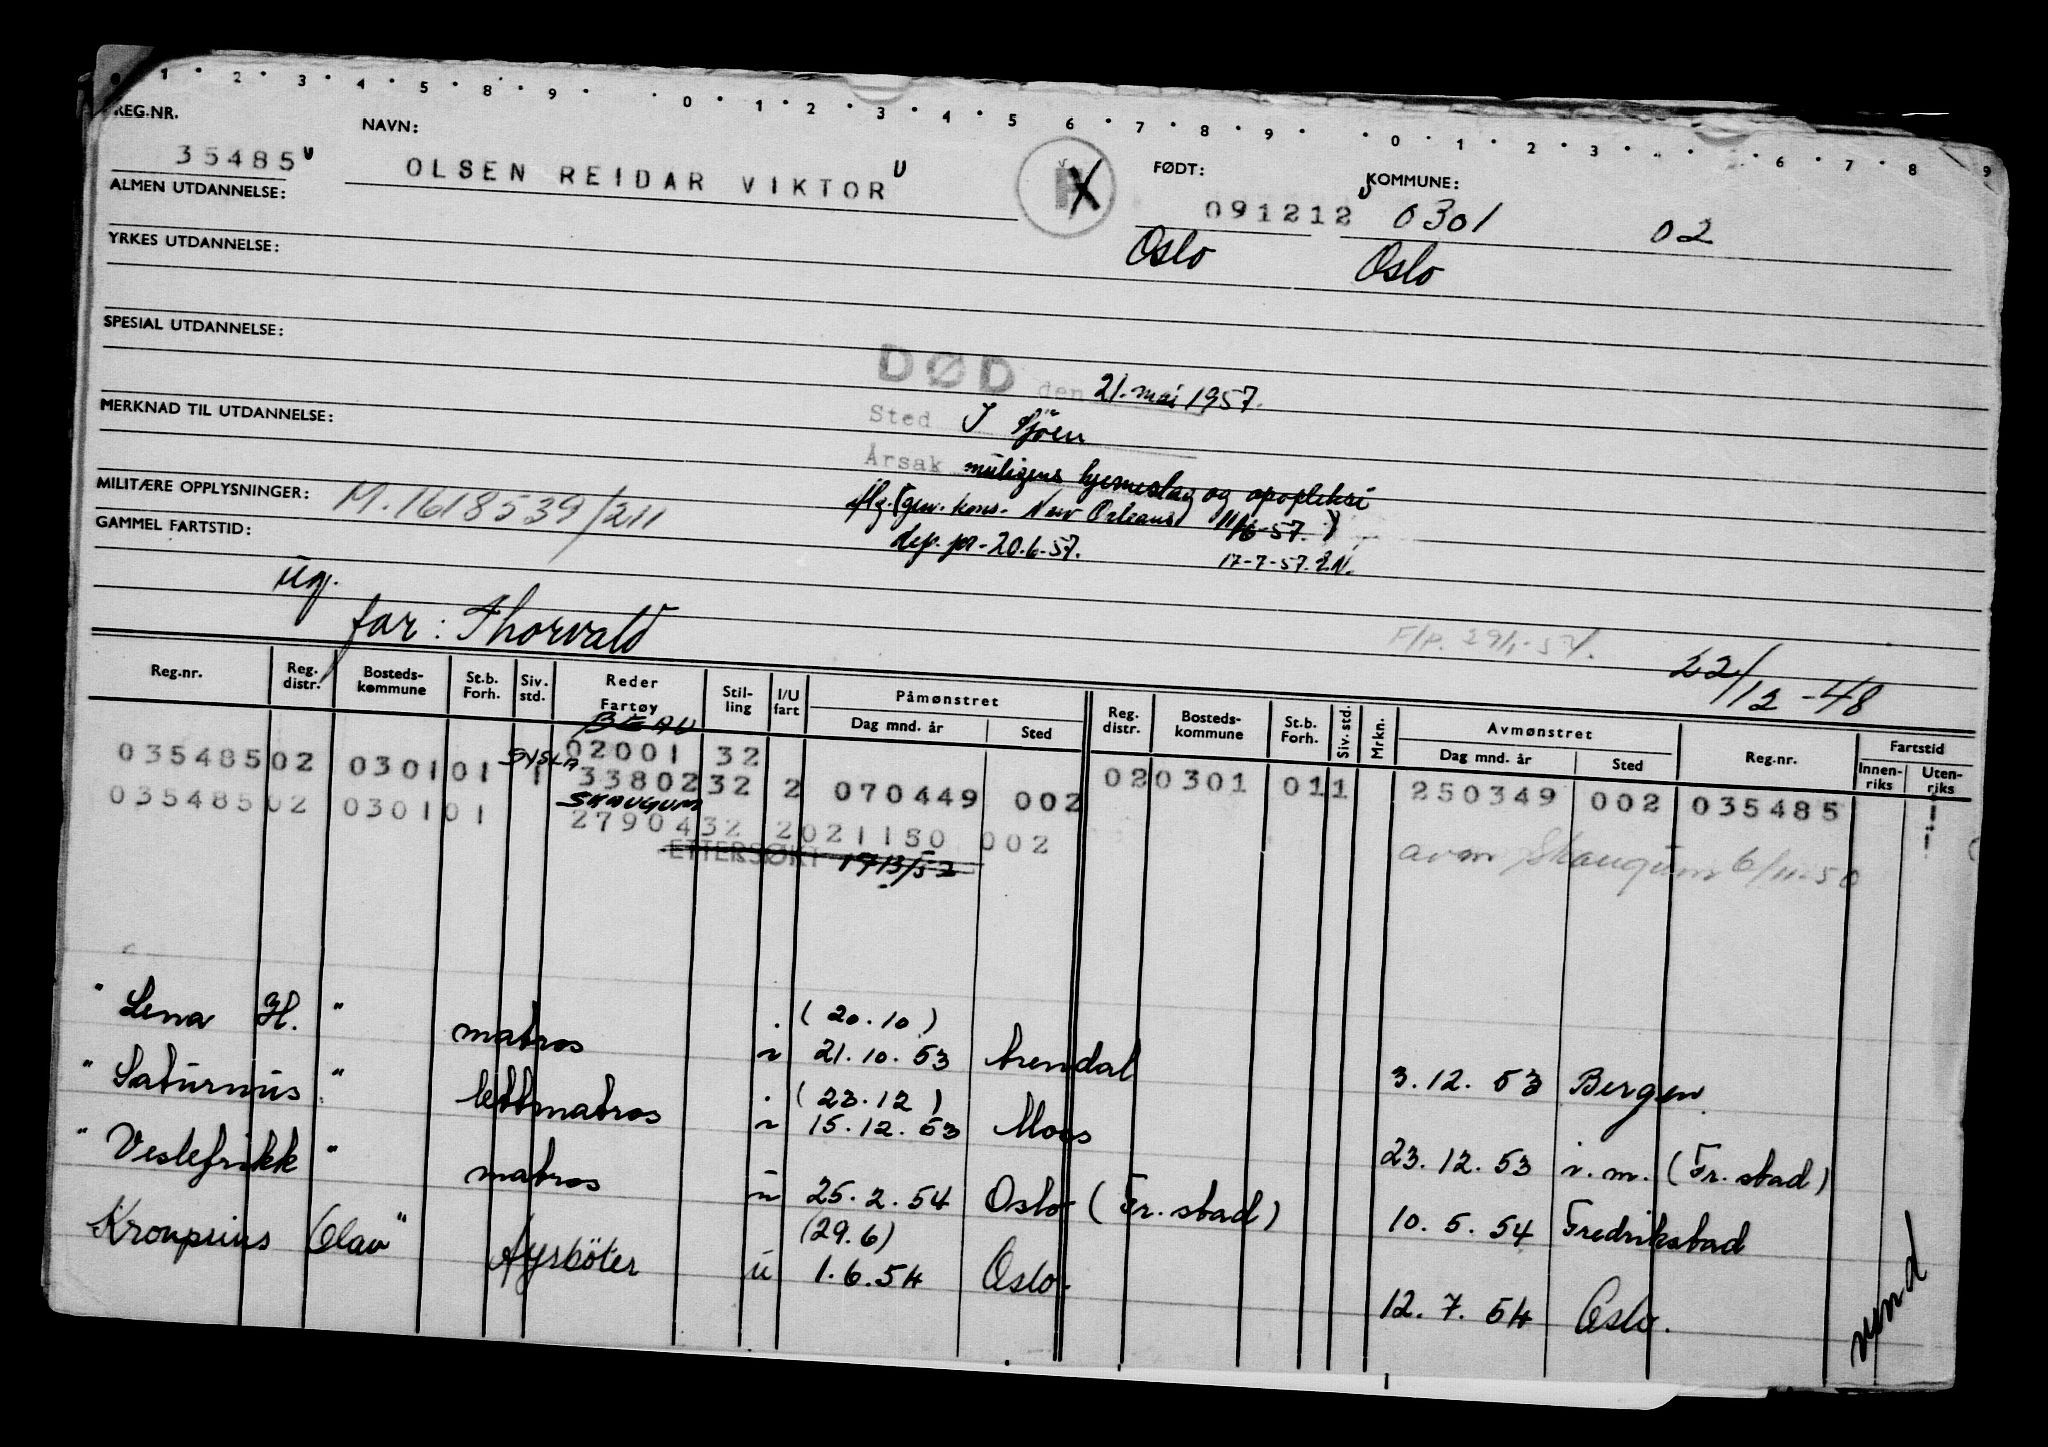 1 2 3 4 5 8 9 0 1 2 3 4 5 6 7 8 9 0 1 2 3 6 7 8 9
REG.NR. NAVN: FØDT: KOMMUNE:
35485 OLSEN REIDAR VIKTOR 091212 0301 02
ALMEN UTDANNELSE: Oslo Oslo
YRKES UTDANNELSE:
SPESIAL UTDANNELSE:
DØD den 21. mai 1957.
MERKNAD TIL UTDANNELSE: Sted I Sjøen
Årsak muligens hjerneslag og apopleksi
MILITÆRE OPPLYSNINGER: M.1618539/211
(gen. kons. New Orleans 11/6-57.)
GAMMEL FARTSTID: dep. pr. 20.6.57. 17-7-57.
ug.
far: Thorvald
F/P. 29/1-57.
22/12-48
Reg.nr. Reg. distr. Bosteds-kommune St.b. Forh. Siv. std. Reder Fartøy Stil-ling I/U fart Påmønstret Dag mnd. år Sted Reg. distr. Bosteds-kommune St.b. Forh. Siv. std. Mrkn. Avmønstret Dag mnd. år Sted Reg.nr. Fartstid Innen-riks Uten-riks
BEAU
02001 32
035485 02 0301 01 1 33802 32 2 070449 002 02 0301 01 1 250349 002 035485
SKAUGUM
035485 02 0301 01 27904 32 2 021150 002
ETTERSØKT 1713/52 avm Skaugum 6/11-50
" Lena H. " matros (20.10) 21.10.53 Arendal 3.12.53 Bergen
" Saturnus " lettmatros (23.12) 15.12.53 Moss 23.12.53 i.m. (Fr.stad)
" Veslefrikk " matros u 25.2.54 Oslo (Fr.stad) 10.5.54 Fredrikstad
Kronprins Olav " fyrbøter u (29.6) 1.6.54 Oslo. 12.7.54 Oslo.
vend